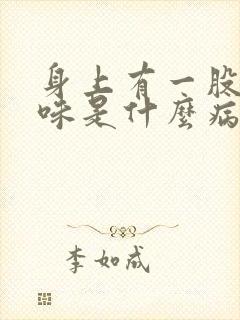 身上有一股
味是什麼病
李如成